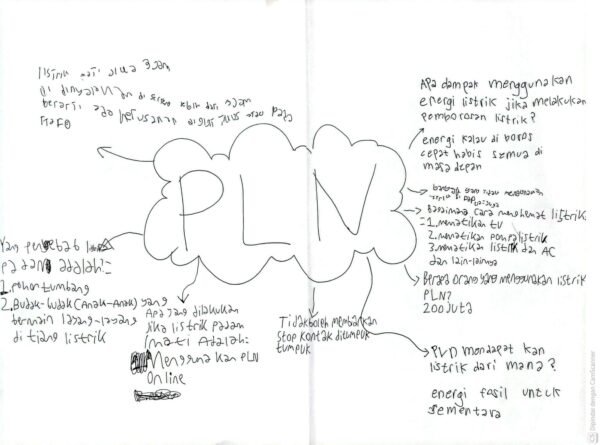 listrik mati jika 3 jam
di
berarti ada
PLN
Apa dampak menggunakan
energi listrik jika melakukan
pemborosan listrik?
energi kalau di boros
cepat habis semua di
masa depan
Bagaimana cara menghemat listrik
1. mematikan tv
2. mematikan pompa listrik
3. mematikan listrik dan AC
dan lain-lainnya
Berapa orang yang menggunakan listrik
PLN?
200 Juta
PLN mendapat kan
listrik dari mana?
energi fosil untuk
sementara
Tidak boleh membiarkan
stop kontak ditumpuk
tumpuk
Apa yang dilakukan
jika listrik padam
mati Adalah:
Menggunakan PLN
Online
Yang penyebab
padam adalah:
1. pohon tumbang
2. Budak-budak (Anak-Anak) yang
bermain layang-layang
di tiang listrik
Dipindai dengan CamScanner